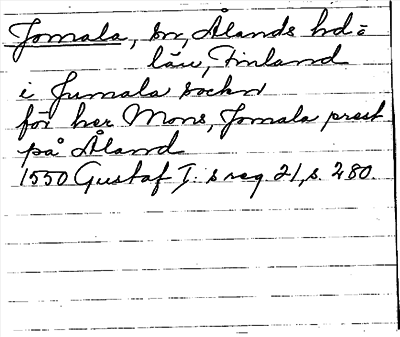 Jomala, sn, Ålands hd =
län, Finland
i Jumala sockn
för her Mons, Jomala prest
på Åland
1550 Gustaf I:s reg 21, s. 280.